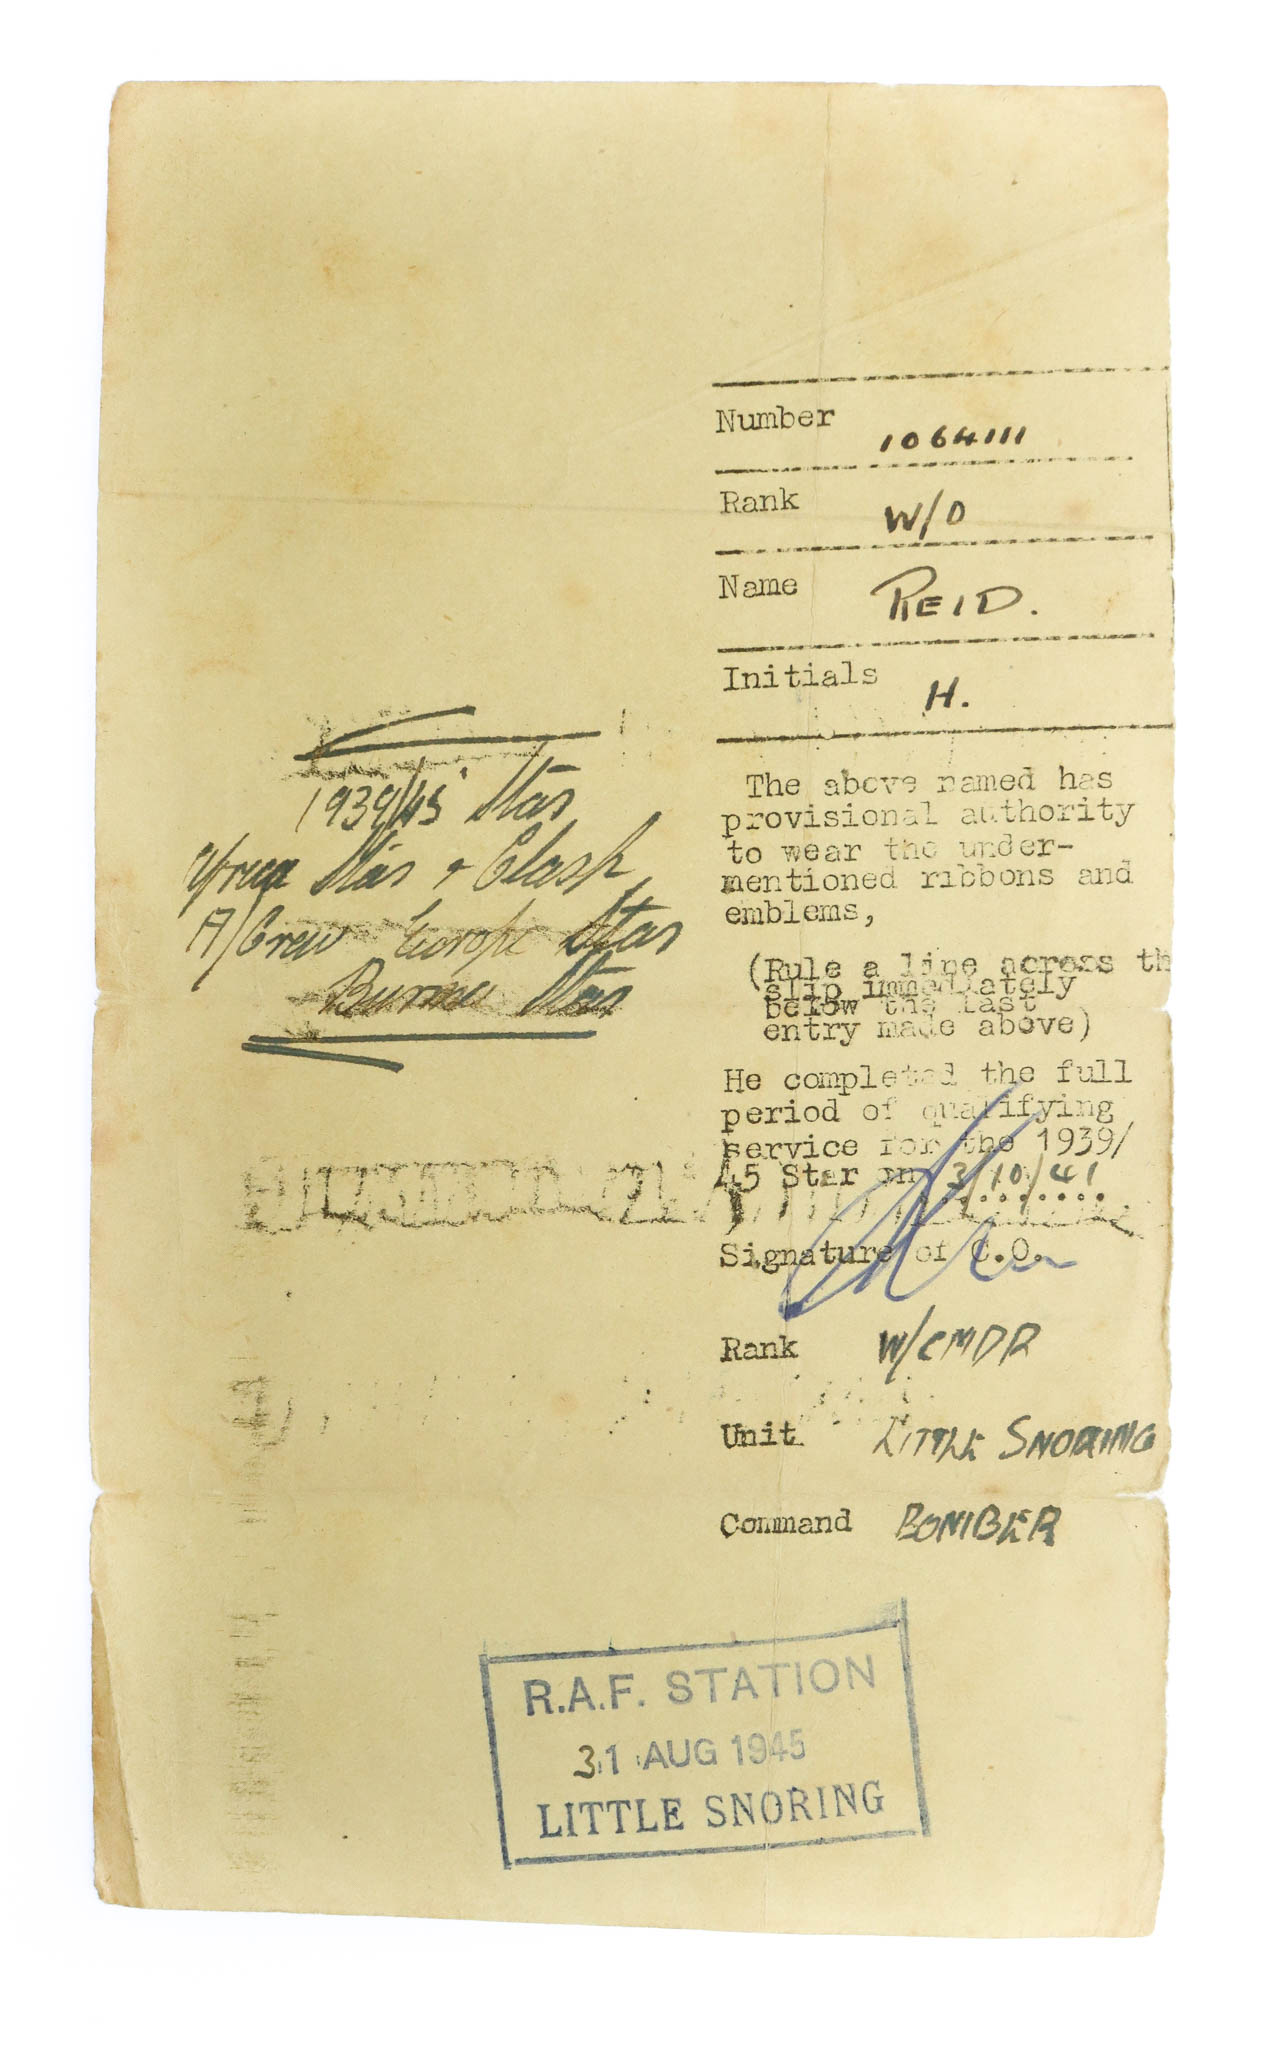 Number 1064111
Rank W/O
Name REID.
Initials H.
1939/45 Star
Star + Clasp
A/Crew Europe Star
Burma Star
The above named has
provisional authority
to wear the under-
mentioned ribbons and
emblems,
(Rule a line across th
slip immediately
below the last
entry made above)
He completed the full
period of qualifying
service for the 1939/
45 Star on 3/10/41
Signature of C.O.
Rank W/CMDR
Unit LITTLE SNORING
Command BOMBER
R.A.F. STATION
31 AUG 1945
LITTLE SNORING